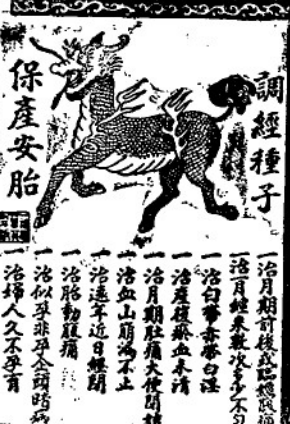 調經種子
保產安胎
一治月期前後或臨經腹痛
一治月經來數次多少不勻
一治白帶赤帶白淫
一治產後瘀血未清
一治月期肚痛大便閉結
一治血山崩漏不止
一治遠年近日經閉
一治胎動腹痛
一治似孕非孕
一治婦人久不孕育